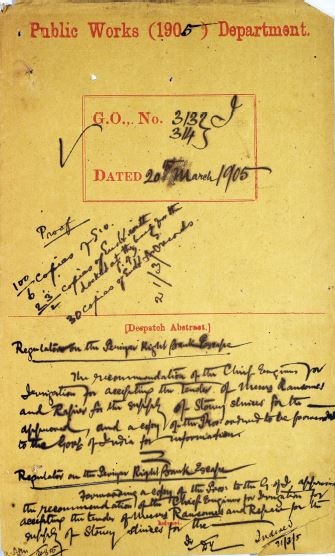 Public Works (1905) Department.
G.O., No. 313 I
314
DATED 20th March 1905
Proof
100 copies of G.O.
6 copies of
30 copies of
21/3/5
[Despatch Abstract.]
Regulator on the Periyar Right Bank Escape
The recommendation of the Chief Engineer for
Irrigation for accepting the tender of Messrs Ransomes
and Rapier for the supply of Stoney sluices for the
approved, and a copy of the Pro. ordered to be forwarded
to the Govt of India for information.
Regulator on the Periyar Right Bank Escape
Forwarding a copy of the Pro. to the G of I, approving
the recommendation of the Chief Engineer for Irrigation for
accepting the tender of Messrs Ransomes and Rapier for the
supply of Stoney sluices for the
Indexed
21/3/5